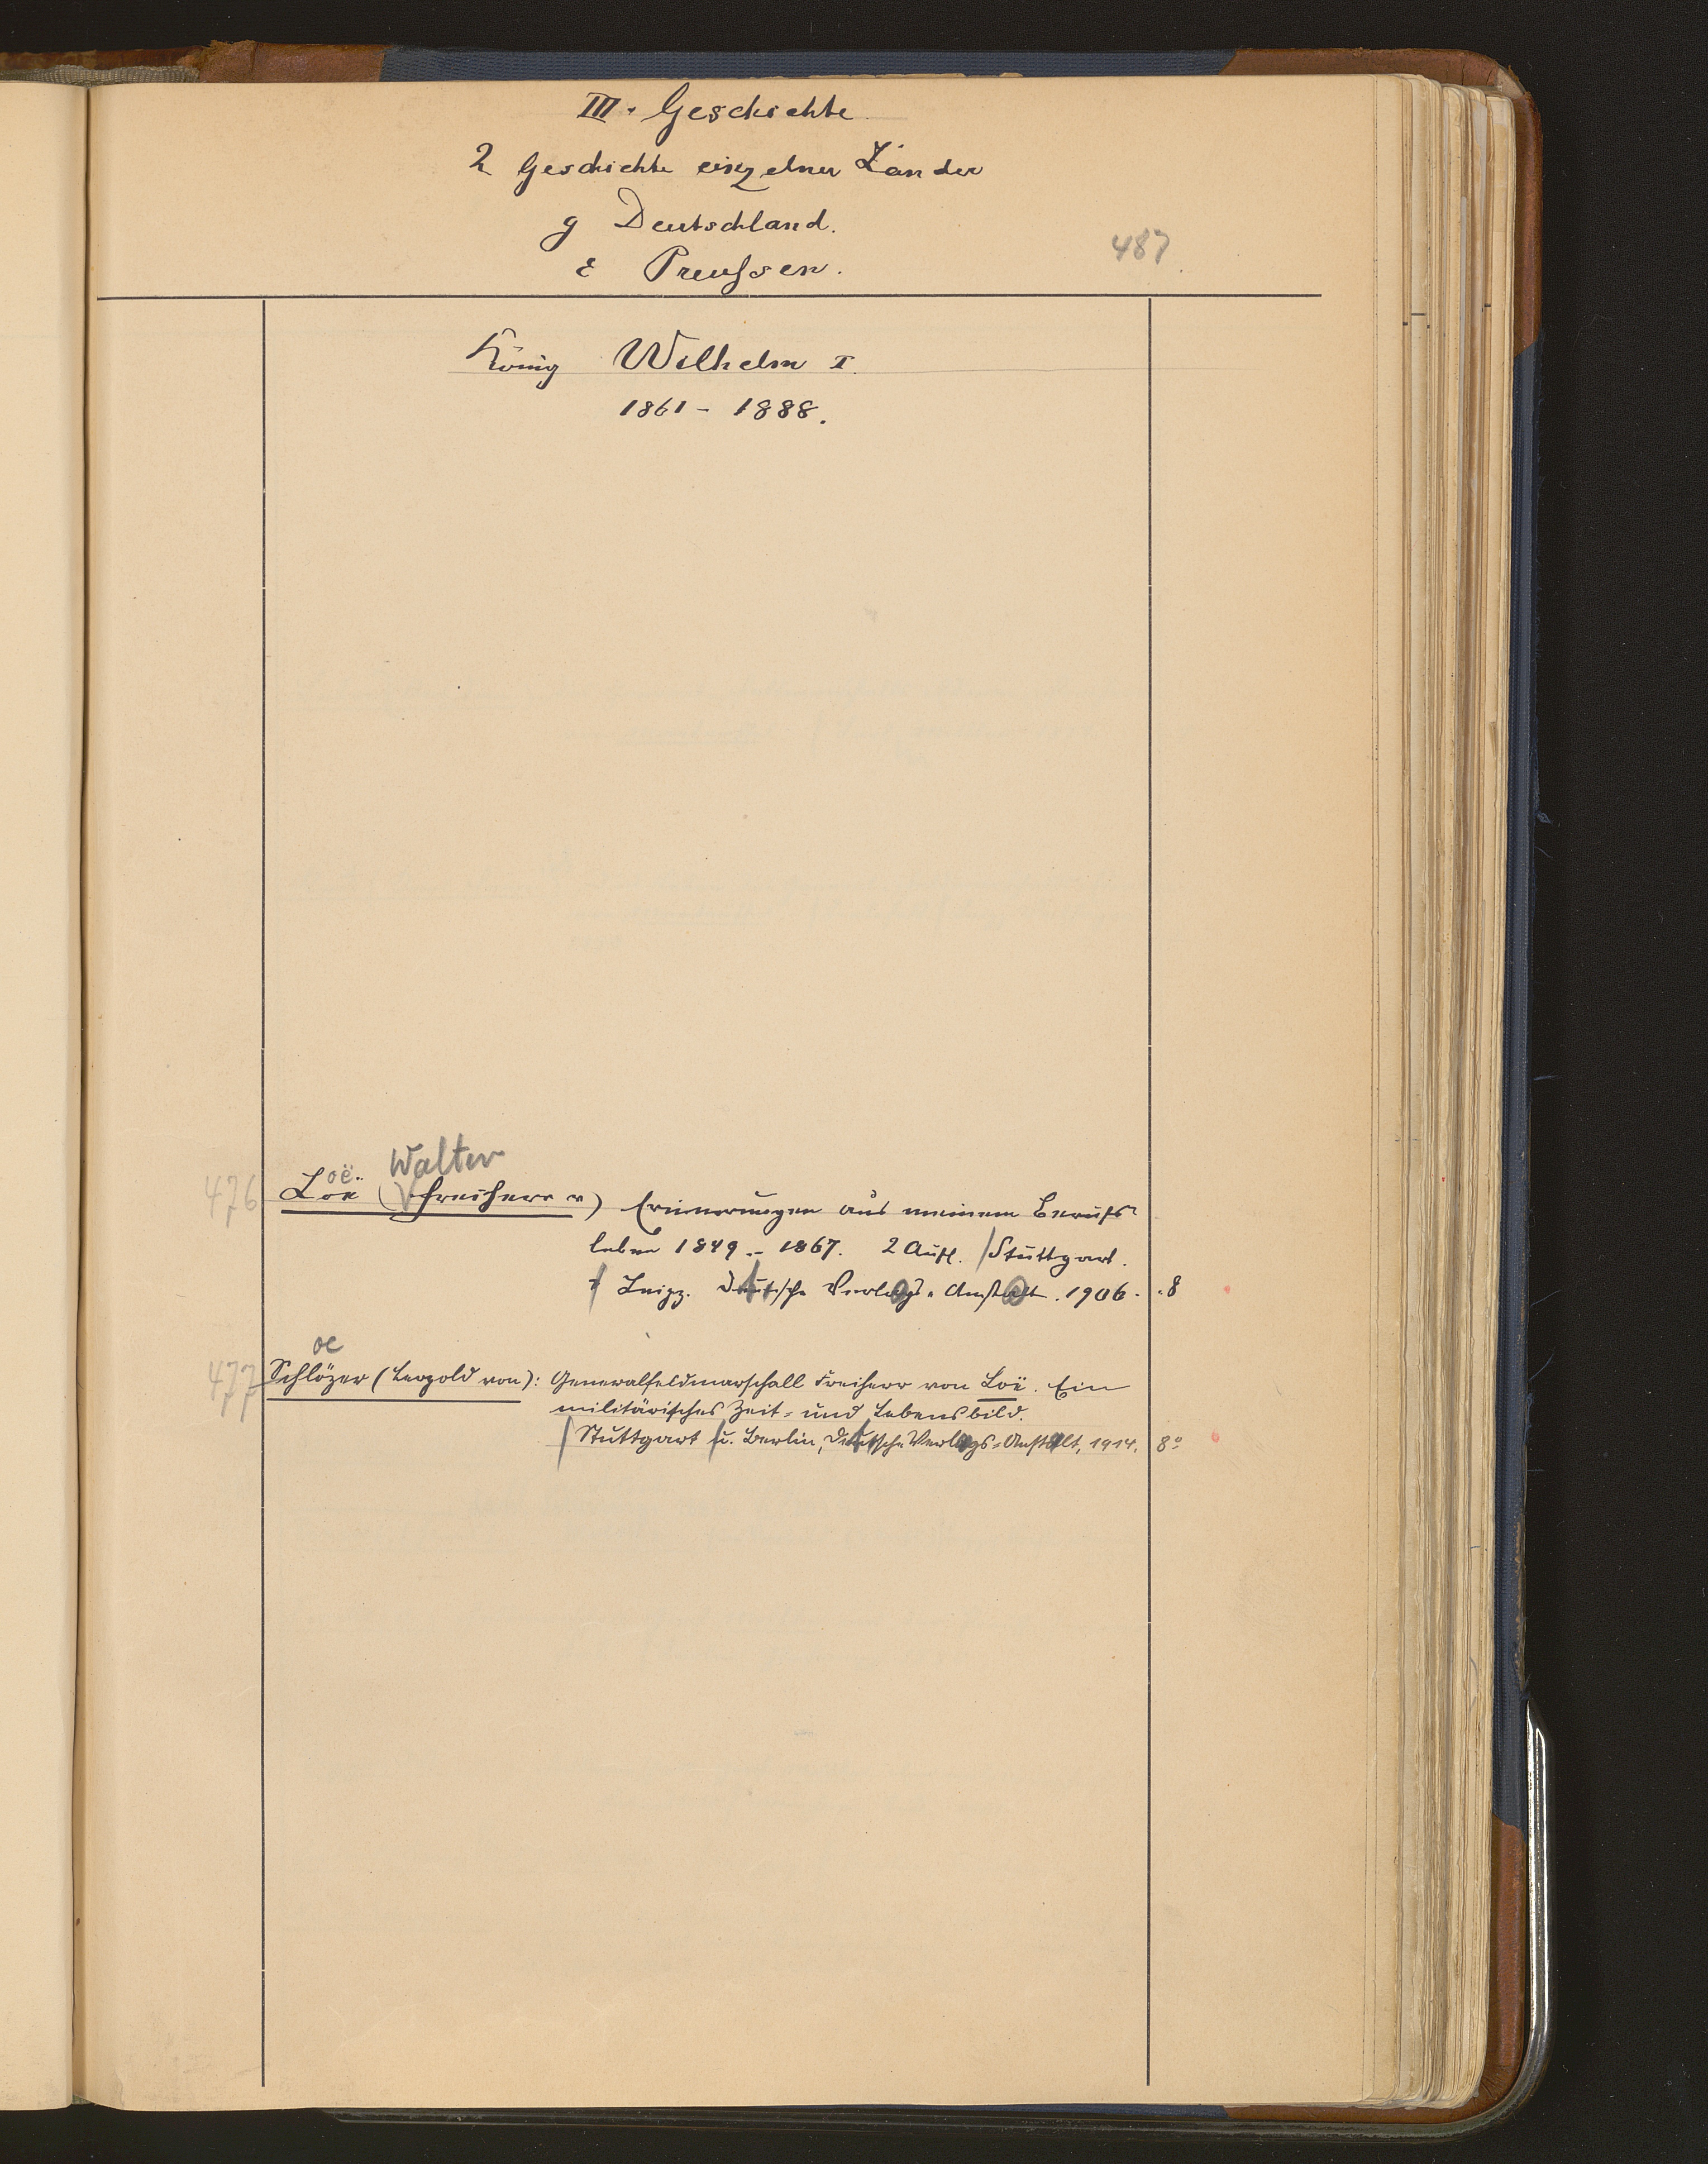 III. Geschichte.
2 Geschichte einzelner Länder
g Deutschland.
ε Preußen.
487.
König Wilhelm I.
1861 - 1888.
Walter
oë
476 Loë (Freiherr v) Erinnerungen aus meinem Berufs-
leben 1849 - 1867. 2 Aufl. Stuttgart.
Leipz. Deutsche Verlags-Anstalt. 1906. 8
oe
477 Schlözer (Leopold von): Generalfeldmarschall Freiherr von Loë. Ein
militärisches Zeit- und Lebensbild.
Stuttgart u. Berlin, Deutsche Verlags-Anstalt, 1914. 8°